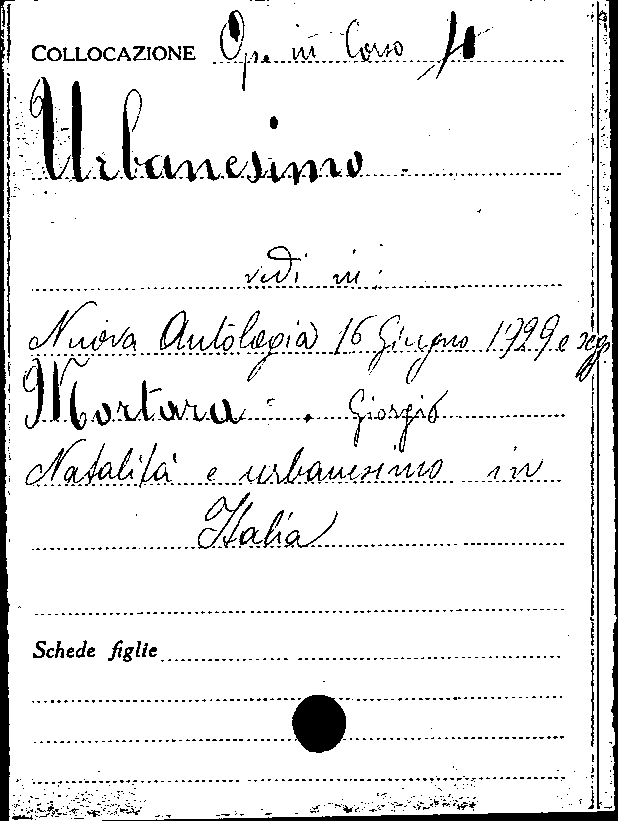 COLLOCAZIONE Op. in Corso
Urbanesimo.
vedi in:
Nuova Antologia 16 Giugno 1929 e segg
Mortara - . Giorgio
Natalità e urbanesimo in
Italia
Schede figlie